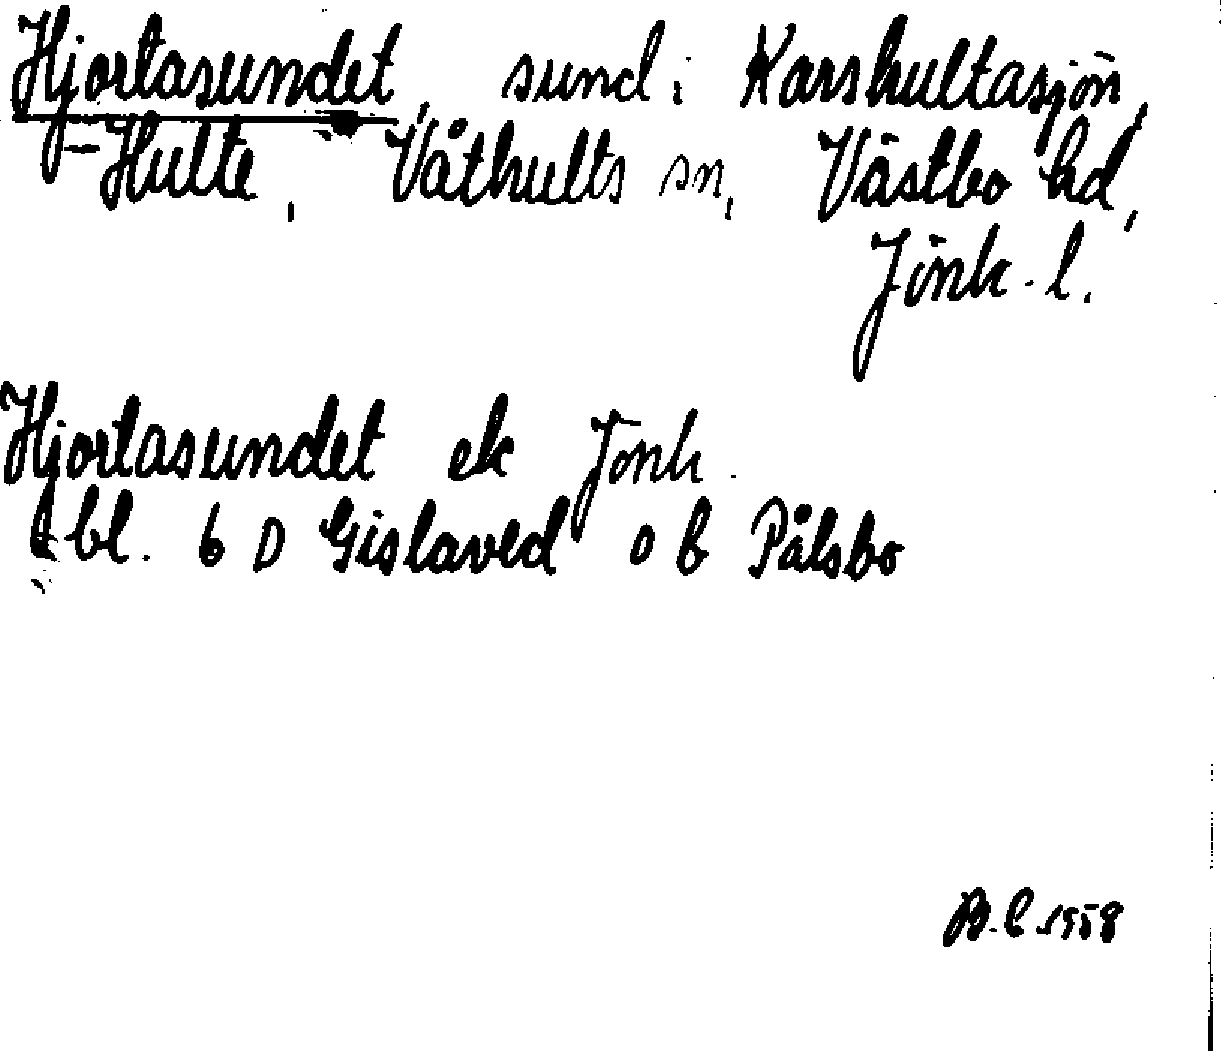 Hjortasundet, sund i Karshultasjön,
- Hulte, Våthults sn, Västbo hd,
Jönk. l.
Hjortasundet ek Jönk.
bl. 6 D Gislaved 0 b Pålsbo
1958